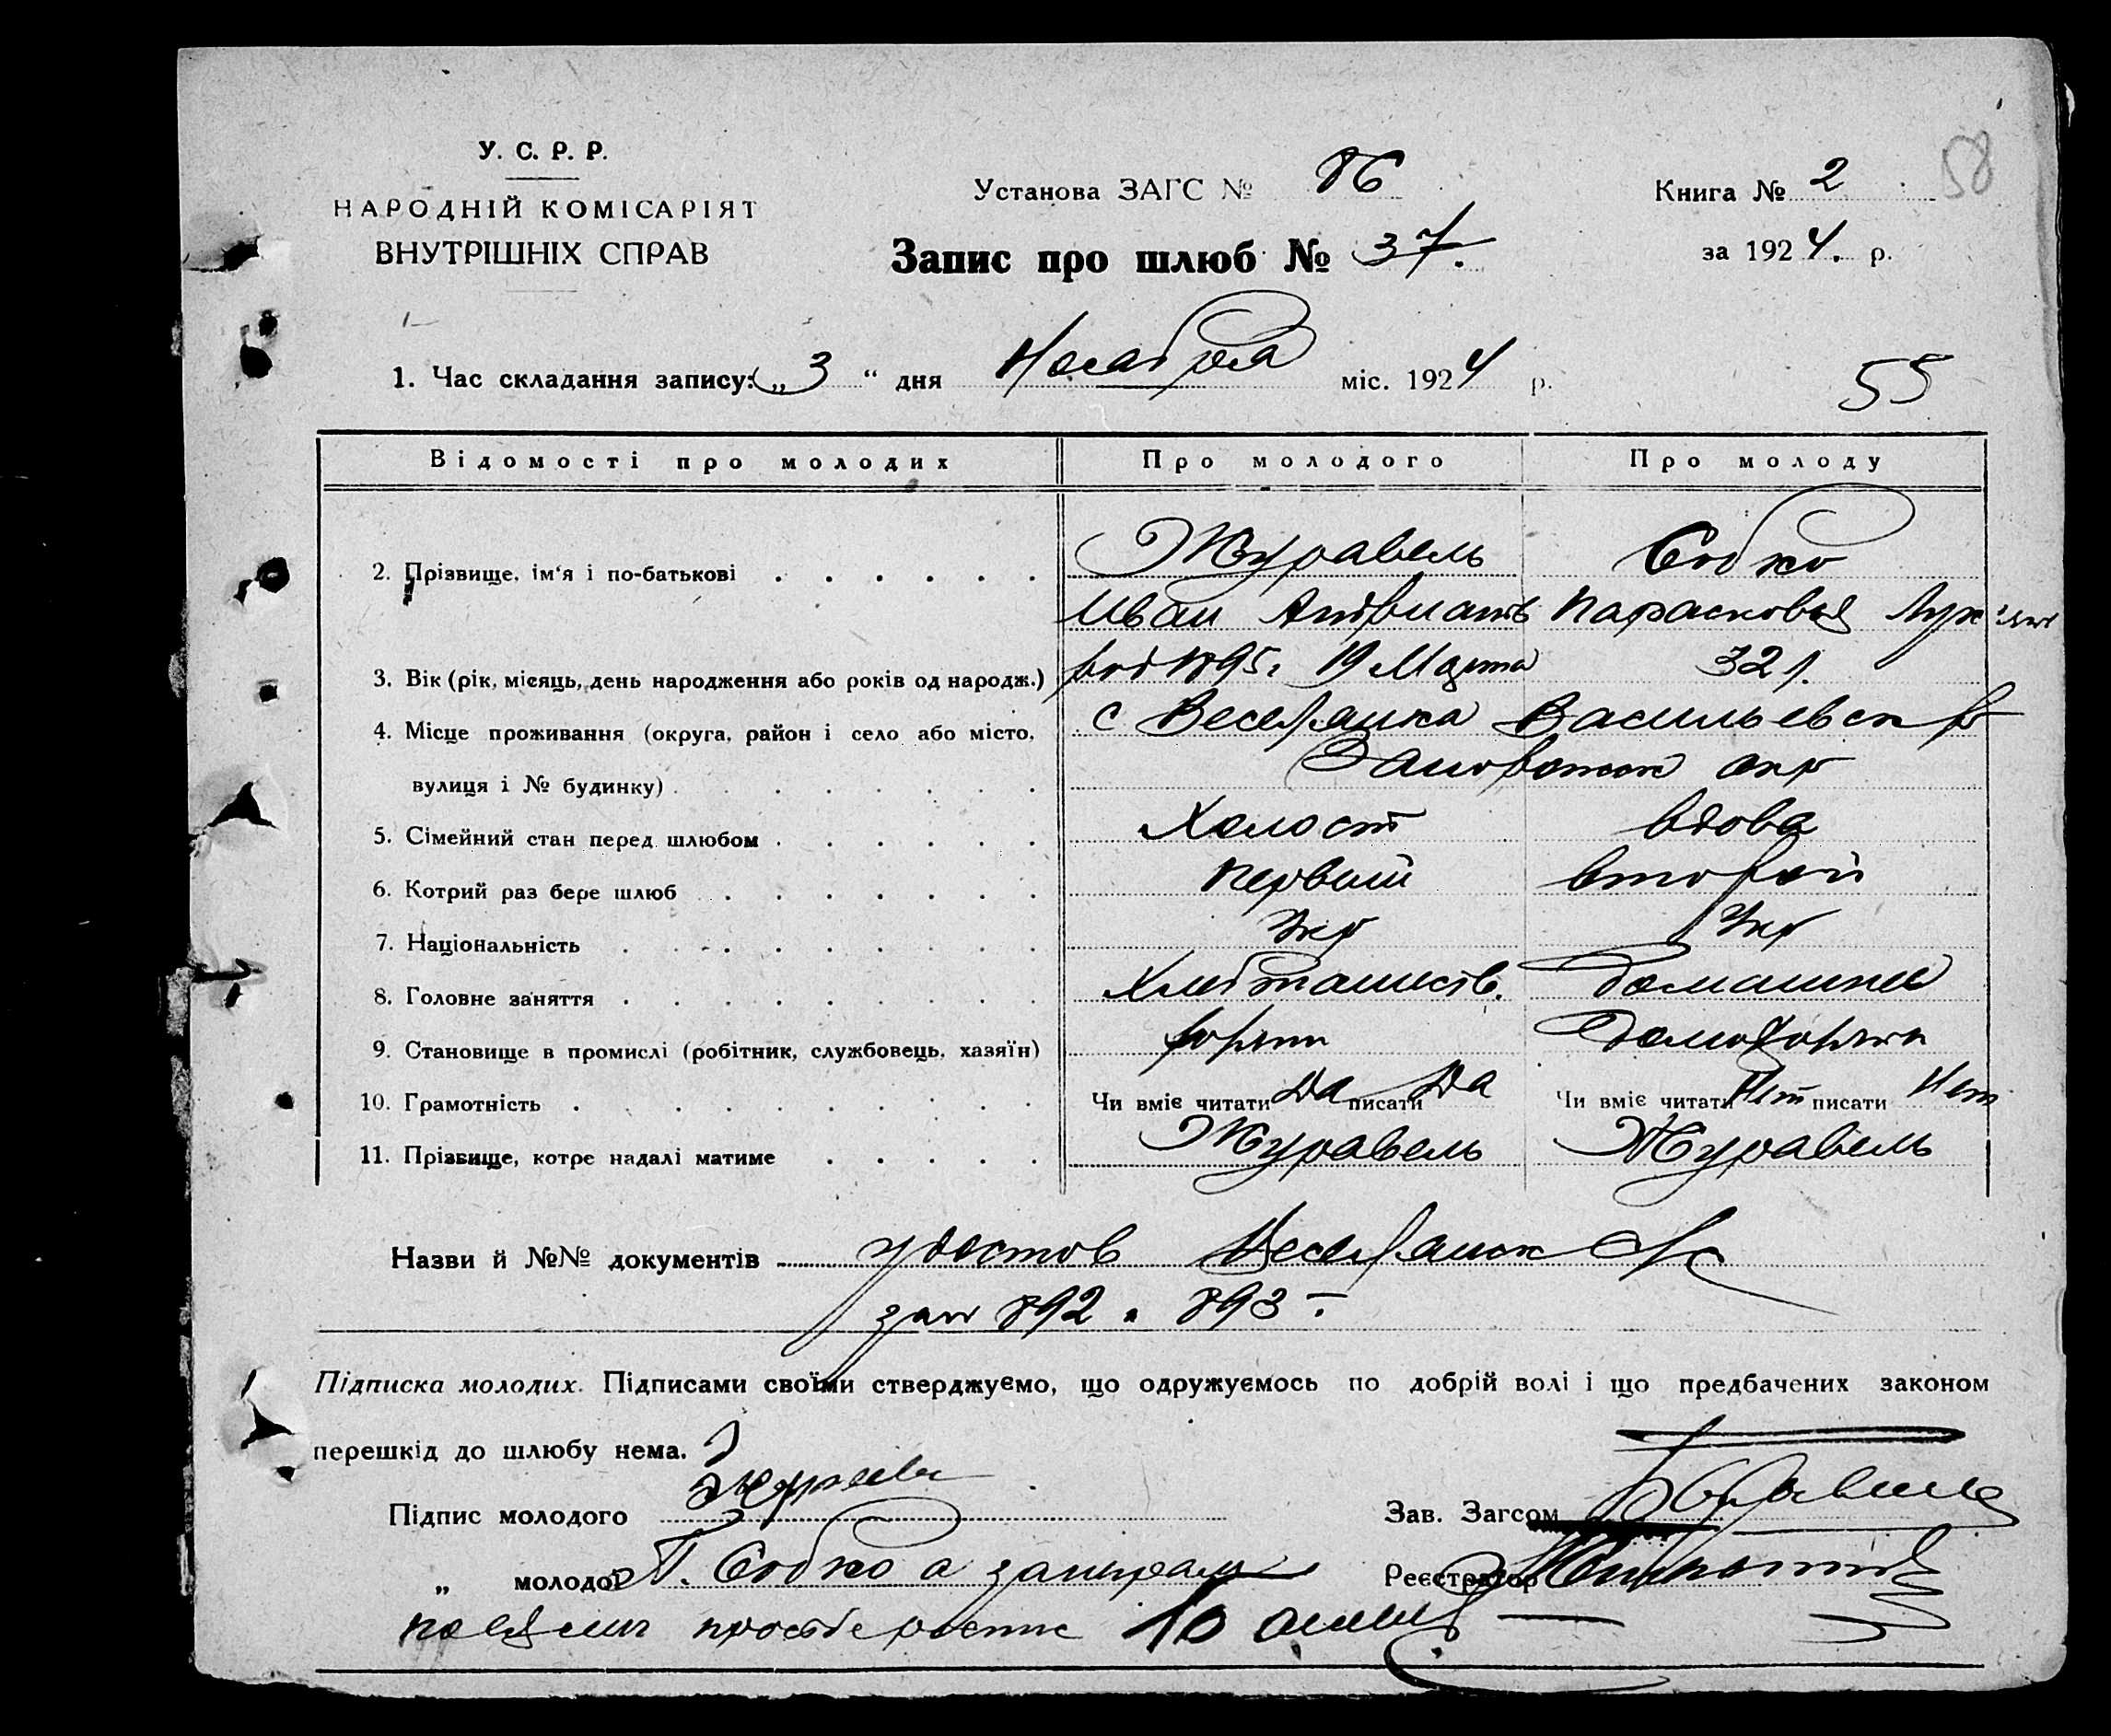 У. С. Р. Р.
НАРОДНІЙ КОМІСАРІЯТ
ВНУТРІШНІХ СПРАВ
Установа ЗАГС № 86
Книга № 2
58
Запис про шлюб № 37.
за 1924. р.
1. Час складання запису: „3“ дня Ноября міс. 1924 р.
55
Відомості про молодих Про молодого Про молоду
2. Прізвище, ім'я і по-батькові Журавель Собко
Иван Парасковья
3. Вік (рік, місяць, день народження або років од народж.) род 1895 г 19 Марта 32 г.
4. Місце проживання (округа, район і село або місто, с Веселянка Васильевск р
вулиця і № будинку) Запорожск окр
5. Сімейний стан перед шлюбом Холост вдова
6. Котрий раз бере шлюб первый второй
7. Національність Укр Укр
8. Головне заняття Домашнее
9. Становище в промислі (робітник, службовець, хазяїн)
10. Грамотність Чи вміє читати Да писати Да Чи вміє читати Нет писати Нет
11. Прізвище, котре надалі матиме Журавель Журавель
Назви й №№ документів удостов Веселянск с/с
за № 892 и 893.
Підписка молодих. Підписами своїми стверджуємо, що одружуємось по добрій волі і що предбачених законом
перешкід до шлюбу нема.
Підпис молодого
Зав. Загсом
„ молодої П. Собко а за
Реєстратор